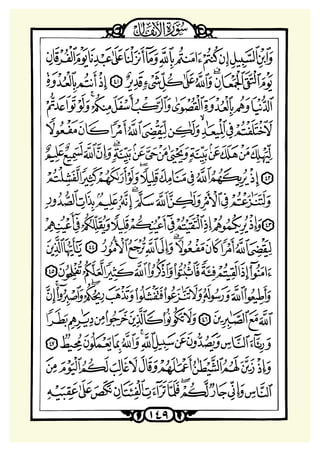 سُورَةُ الأَنفَال
وَٱبْنِ ٱلسَّبِيلِ إِن كُنتُمْ ءَامَنتُم بِٱللَّهِ وَمَآ أَنزَلْنَا عَلَىٰ عَبْدِنَا يَوْمَ ٱلْفُرْقَانِ
يَوْمَ ٱلْتَقَى ٱلْجَمْعَانِ وَٱللَّهُ عَلَىٰ كُلِّ شَىْءٍ قَدِيرٌ ٤١ إِذْ أَنتُم بِٱلْعُدْوَةِ
ٱلدُّنْيَا وَهُم بِٱلْعُدْوَةِ ٱلْقُصْوَىٰ وَٱلرَّكْبُ أَسْفَلَ مِنكُمْ وَلَوْ تَوَاعَدتُّمْ
لَٱخْتَلَفْتُمْ فِى ٱلْمِيعَٰدِ وَلَٰكِن لِّيَقْضِىَ ٱللَّهُ أَمْرًا كَانَ مَفْعُولًا
لِّيَهْلِكَ مَنْ هَلَكَ عَنۢ بَيِّنَةٍ وَيَحْيَىٰ مَنْ حَىَّ عَنۢ بَيِّنَةٍ وَإِنَّ ٱللَّهَ لَسَمِيعٌ عَلِيمٌ
٤٢ إِذْ يُرِيكَهُمُ ٱللَّهُ فِى مَنَامِكَ قَلِيلًا وَلَوْ أَرَىٰكَهُمْ كَثِيرًا لَّفَشِلْتُمْ
وَلَتَنَٰزَعْتُمْ فِى ٱلْأَمْرِ وَلَٰكِنَّ ٱللَّهَ سَلَّمَ إِنَّهُۥ عَلِيمٌۢ بِذَاتِ ٱلصُّدُورِ
٤٣ وَإِذْ يُرِيكُمُوهُمْ إِذِ ٱلْتَقَيْتُمْ فِىٓ أَعْيُنِكُمْ قَلِيلًا وَيُقَلِّلُكُمْ فِىٓ أَعْيُنِهِمْ
لِيَقْضِىَ ٱللَّهُ أَمْرًا كَانَ مَفْعُولًا وَإِلَى ٱللَّهِ تُرْجَعُ ٱلْأُمُورُ ٤٤ يَٰٓأَيُّهَا ٱلَّذِينَ
ءَامَنُوٓا۟ إِذَا لَقِيتُمْ فِئَةً فَٱثْبُتُوا۟ وَٱذْكُرُوا۟ ٱللَّهَ كَثِيرًا لَّعَلَّكُمْ تُفْلِحُونَ ٤٥
وَأَطِيعُوا۟ ٱللَّهَ وَرَسُولَهُۥ وَلَا تَنَٰزَعُوا۟ فَتَفْشَلُوا۟ وَتَذْهَبَ رِيحُكُمْ وَٱصْبِرُوٓا۟ إِنَّ
ٱللَّهَ مَعَ ٱلصَّٰبِرِينَ ٤٦ وَلَا تَكُونُوا۟ كَٱلَّذِينَ خَرَجُوا۟ مِن دِيَٰرِهِم بَطَرًا
وَرِئَآءَ ٱلنَّاسِ وَيَصُدُّونَ عَن سَبِيلِ ٱللَّهِ وَٱللَّهُ بِمَا يَعْمَلُونَ مُحِيطٌ ٤٧
وَإِذْ زَيَّنَ لَهُمُ ٱلشَّيْطَٰنُ أَعْمَٰلَهُمْ وَقَالَ لَا غَالِبَ لَكُمُ ٱلْيَوْمَ مِنَ
ٱلنَّاسِ وَإِنِّى جَارٌ لَّكُمْ فَلَمَّا تَرَآءَتِ ٱلْفِئَتَانِ نَكَصَ عَلَىٰ عَقِبَيْهِ
١٤٩